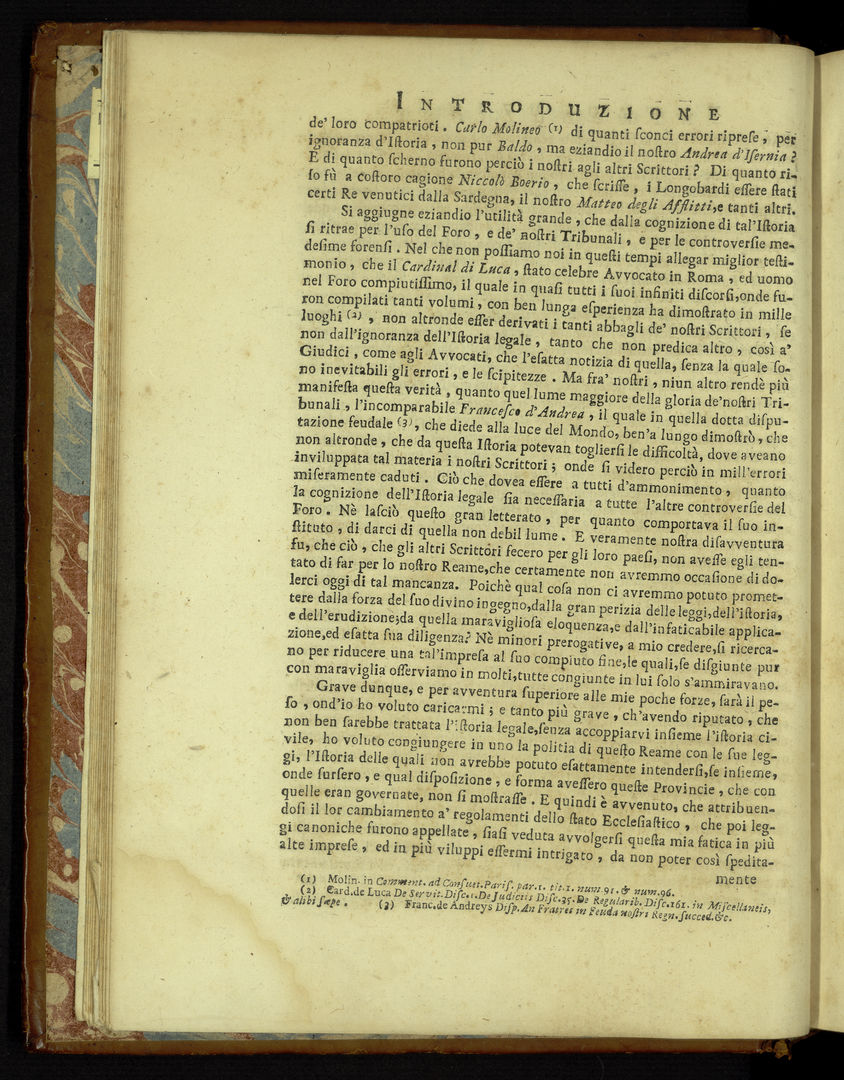 INTRODUZIONE
de' loro compatrioti. Carlo Molineo (1) di quanti ſconci errori ripreſe, per
ignoranza d'Iſtoria, non pur Baldo, ma eziandio il noſtro Andrea d'Iſernia?
E di quanto ſcherno furono perciò i noſtri agli altri Scrittori? Di quanto ri-
ſo fù a coſtoro cagione Niccolò Boerio, che ſcriſſe, i Longobardi eſſere ſtati
certi Re venutici dalla Sardegna, il noſtro Matteo degli Afflitti, e tanti altri.
Si aggiugne eziandio l'utilità grande, che dalla cognizione di tal'Iſtoria
ſi ritrae per l'uſo del Foro, e de' noſtri Tribunali, e per le controverſie me-
deſime forenſi. Nel che non poſſiamo noi in queſti tempi allegar miglior teſti-
monio, che il Cardinal di Luca, ſtato celebre Avvocato in Roma, ed uomo
nel Foro compiutiſſimo, il quale in quaſi tutti i ſuoi infiniti diſcorſi, onde fu-
ron compilati tanti volumi, con ben lunga eſperienza ha dimoſtrato in mille
luoghi (2), non altronde eſſer derivati i tanti abbagli de' noſtri Scrittori, ſe
non dall'ignoranza dell'Iſtoria legale, tanto che non predica altro, così a'
Giudici, come agli Avvocati, che l'eſatta notizia di quella, ſenza la quale ſo-
no inevitabili gli errori, e le ſcipitezze. Ma fra' noſtri, niun altro rendè più
manifeſta queſta verità, quanto quel lume maggiore della gloria de'noſtri Tri-
bunali, l'incomparabile Franceſco d'Andrea, il quale in quella dotta diſpu-
tazione feudale (3), che diede alla luce del Mondo, ben'a lungo dimoſtrò, che
non altronde, che da queſta Iſtoria potevan toglierſi le difficoltà, dove aveano
inviluppata tal materia i noſtri Scrittori; onde ſi videro perciò in mill'errori
miſeramente caduti. Ciò che dovea eſſere a tutti d'ammonimento, quanto
la cognizione dell'Iſtoria legale ſia neceſſaria a tutte l'altre controverſie del
Foro. Nè laſciò queſto gran letterato, per quanto comportava il ſuo in-
ſtituto, di darci di quella non debil lume. E veramente noſtra diſavventura
fu, che ciò, che gli altri Scrittori fecero per gli loro paeſi, non aveſſe egli ten-
tato di far per lo noſtro Reame, che certamente non avremmo occaſione di do-
lerci oggi di tal mancanza. Poichè qual coſa non ci avremmo potuto promet-
tere dalla forza del ſuo divino ingegno, dalla gran perizia delle leggi, dell'iſtoria,
e dell'erudizione; da quella maraviglioſa eloquenza, e dall'infaticabile applica-
zione, ed eſatta ſua diligenza? Nè minori prerogative, a mio credere, ſi ricerca-
no per riducere una tal'impreſa al ſuo compiuto fine, le quali, ſe diſgiunte pur
con maraviglia oſſerviamo in molti, tutte congiunte in lui ſolo s'ammiravano.
Grave dunque, e per avventura ſuperiore alle mie poche forze, ſarà il pe-
ſo, ond'io ho voluto caricarmi; e tanto più grave, ch'avendo riputato, che
non ben ſarebbe trattata l'iſtoria legale, ſenza accoppiarvi inſieme l'iſtoria ci-
vile, ho voluto congiungere in uno la politia di queſto Reame con le ſue leg-
gi, l'Iſtoria delle quali non avrebbe potuto eſattamente intenderſi, ſe inſieme,
onde furſero, e qual diſpoſizione, e forma aveſſero queſte Provincie, che con
quelle eran governate, non ſi moſtraſſe. E quindi è avvenuto, che attribuen-
doſi il lor cambiamento a' regolamenti dello ſtato Eccleſiaſtico, che poi leg-
gi canoniche furono appellate, ſiaſi veduta avvolgerſi queſta mia fatica in più
alte impreſe, ed in più viluppi eſſermi intrigato, da non poter così ſpedita-
mente
(1) Molin. in Comment. ad Conſuet. Pariſ. par. 1. tit. 1. num. 91. & num. 96.
(2) Card. de Luca De Servit. Diſc. 1. De Judiciis Diſc. 35. De Regularib. Diſc. 161. in Miſcellaneis,
& alibi ſæpe. (3) Franc. de Andreys Diſp. An Fratres in Feuda noſtri Regn. ſucced. &c.